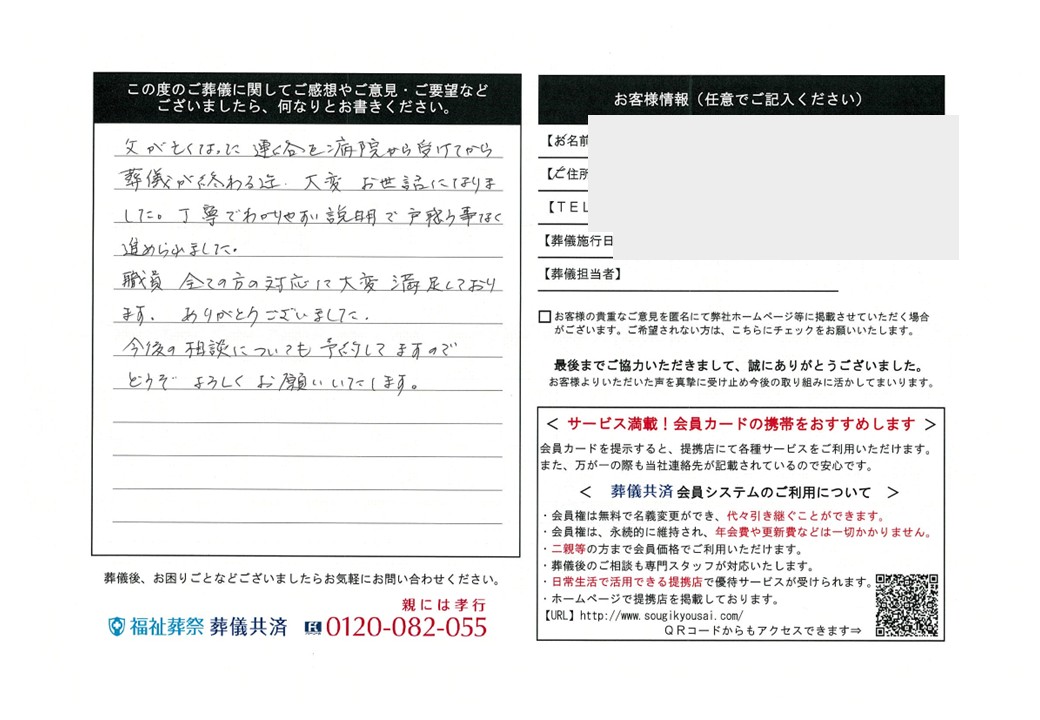 この度のご葬儀に関してご感想やご意見・ご要望など
ございましたら、何なりとお書きください。
父が亡くなった連絡を病院から受けてから
葬儀が終わる迄、大変 お世話になりま
した。丁寧でわかりやすい説明で戸惑う事なく
進められました。
職員 全ての方の対応に大変 満足しており
ます。ありがとうございました。
今後の相談についても予約してますので
どうぞ よろしく お願いいたします。
葬儀後、お困りごとなどございましたらお気軽にお問い合わせください。
親には孝行
福祉葬祭 葬儀共済 0120-082-055
お客様情報（任意でご記入ください）
【お名前
【ご住所
【ＴＥＬ
【葬儀施行日
【葬儀担当者】
□お客様の貴重なご意見を匿名にて弊社ホームページ等に掲載させていただく場合
がございます。ご希望されない方は、こちらにチェックをお願いいたします。
最後までご協力いただきまして、誠にありがとうございました。
お客様よりいただいた声を真摯に受け止め今後の取り組みに活かしてまいります。
＜ サービス満載！会員カードの携帯をおすすめします ＞
会員カードを提示すると、提携店にて各種サービスをご利用いただけます。
また、万が一の際も当社連絡先が記載されているので安心です。
＜ 葬儀共済会員システムのご利用について ＞
・会員権は無料で名義変更ができ、代々引き継ぐことができます。
・会員権は、永続的に維持され、年会費や更新費などは一切かかりません。
・二親等の方まで会員価格でご利用いただけます。
・葬儀後のご相談も専門スタッフが対応いたします。
・日常生活で活用できる提携店で優待サービスが受けられます。
・ホームページで提携店を掲載しております。
【URL】http://www.sougikyousai.com/
ＱＲコードからもアクセスできます⇒